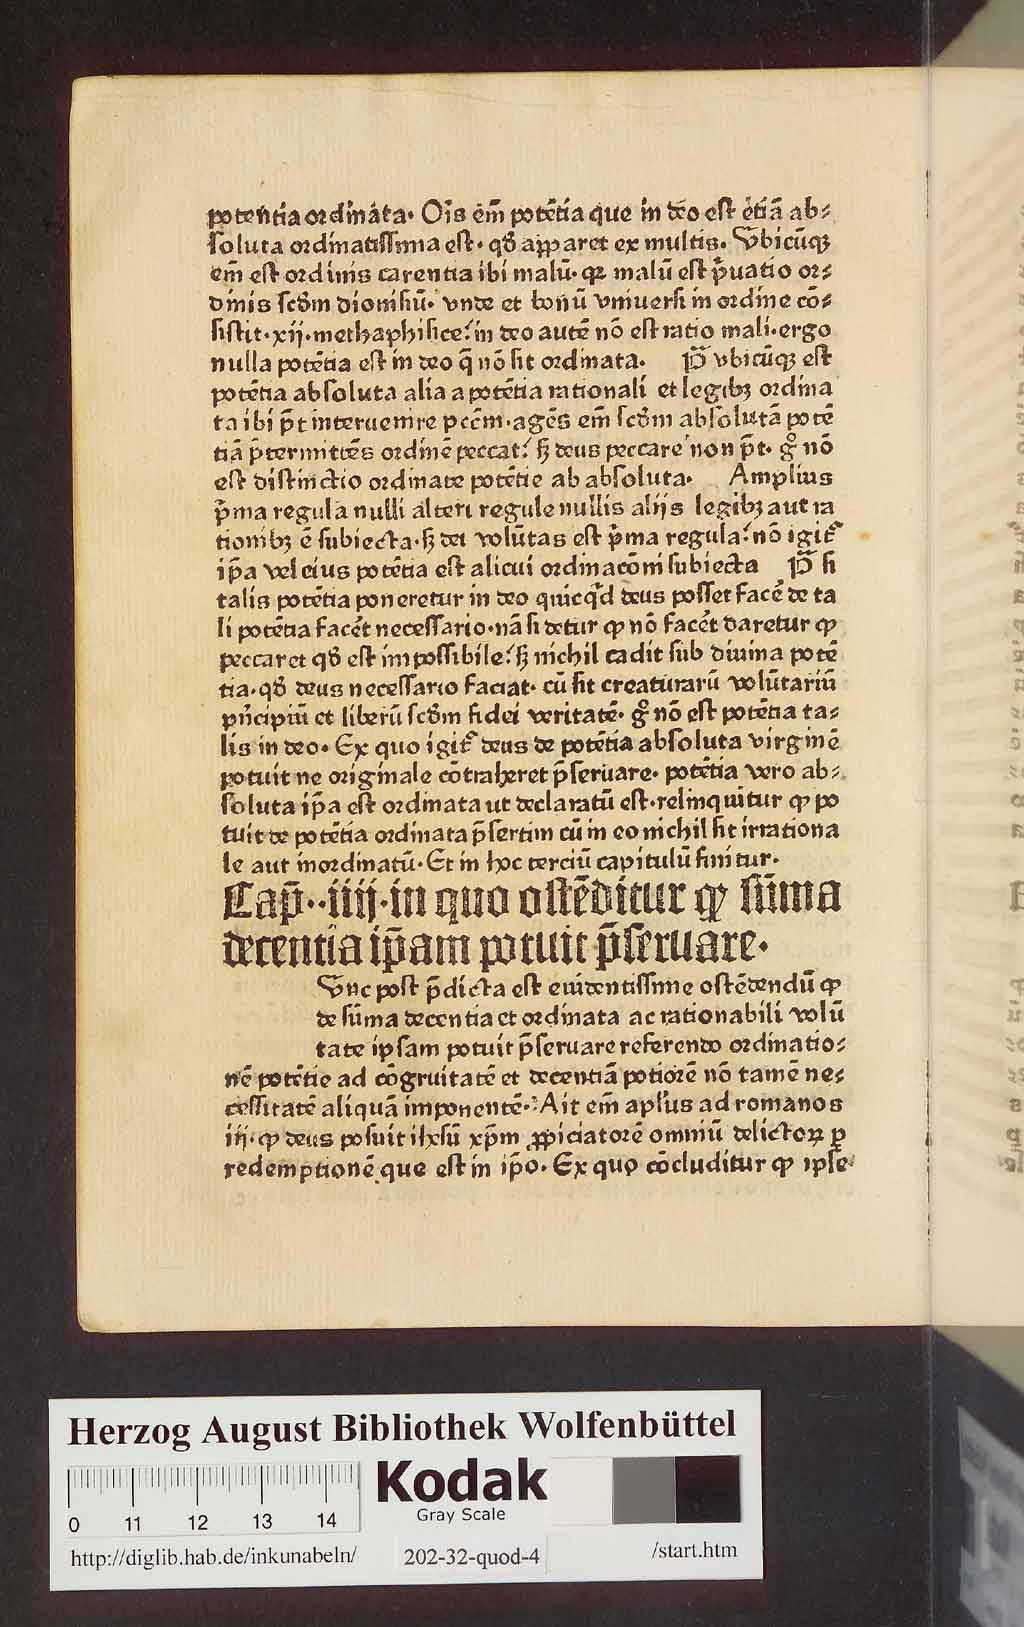 potentia ordinata. Oīs em̄ potētia que in deo est etiā ab⸗
soluta ordinatissima est. qđ apparet ex multis. Vbicūqꝫ
em̄ est ordinis carentia ibi malū. qꝛ malū est p̄uatio or⸗
dinis scđm dionisiū. vnde et bonū vniuersi in ordine cō⸗
sistit. xij. methaphisice. in deo autē nō est ratio mali. ergo
nulla potētia est in deo q̄ nō sit ordinata. P̄ vbicūqꝫ est
potētia absoluta alia a potētia rationali et legibꝫ ordina
ta ibi p̄t interuenire pccm̄. agēs em̄ scđm absolutā potē
tiā p̄termittēs ordinē peccat. sꝫ deus peccare non p̄t. gͦ nō
est distinctio ordinate potētie ab absoluta. Amplius
p̄ma regula nulli alteri regule nullis alijs legibꝫ aut ra
tionibꝫ ē subiecta. sꝫ dei volūtas est p̄ma regula. nō igit᷑
ip̄a vel eius potētia est alicui ordinacōni subiecta P̄ si
talis potētia poneretur in deo quicq̄d deus posset facē de ta
li potētia facēt necessario. nā si detur ꝙ nō facēt daretur ꝙ
peccaret qđ est impossibile. sꝫ nichil cadit sub diuina potē
tia. qđ deus necessario faciat. cū sit creaturarū volūtariū
pn̄cipiū et liberū scđm fidei veritatē. gͦ nō est potētia ta⸗
lis in deo. Ex quo igit᷑ deus de potētia absoluta virginē
potuit ne originale cōtraheret p̄seruare. potētia vero ab⸗
soluta ip̄a est ordinata ut declaratū est. relinquitur ꝙ po
tuit de potētia ordinata p̄sertim cū in eo nichil sit irrationa
le aut inordinatū. Et in hoc terciū capitulū finitur.
Cap̄. .iiij. in quo ostēditur ꝙ sūma
decentia ip̄am potuit p̄seruare.
Vnc post p̄dicta est euidentissime ostēdendū ꝙ
de sūma decentia et ordinata ac rationabili volū
tate ipsam potuit p̄seruare referendo ordinatio⸗
nē potētie ad cōgruitatē et decentiā potiorē nō tamē ne⸗
cessitatē aliquā imponentē. Ait em̄ apl̄us ad romanos
iij. ꝙ deus posuit ihesū xp̄m ꝓpiciatorē omniū delictoꝝ ꝑ
redemptionē que est in ip̄o. Ex quo cōcluditur ꝙ ipse
Herzog August Bibliothek Wolfenbüttel
Kodak
Gray Scale
0 11 12 13 14
http://diglib.hab.de/inkunabeln/ 202-32-quod-4 /start.htm